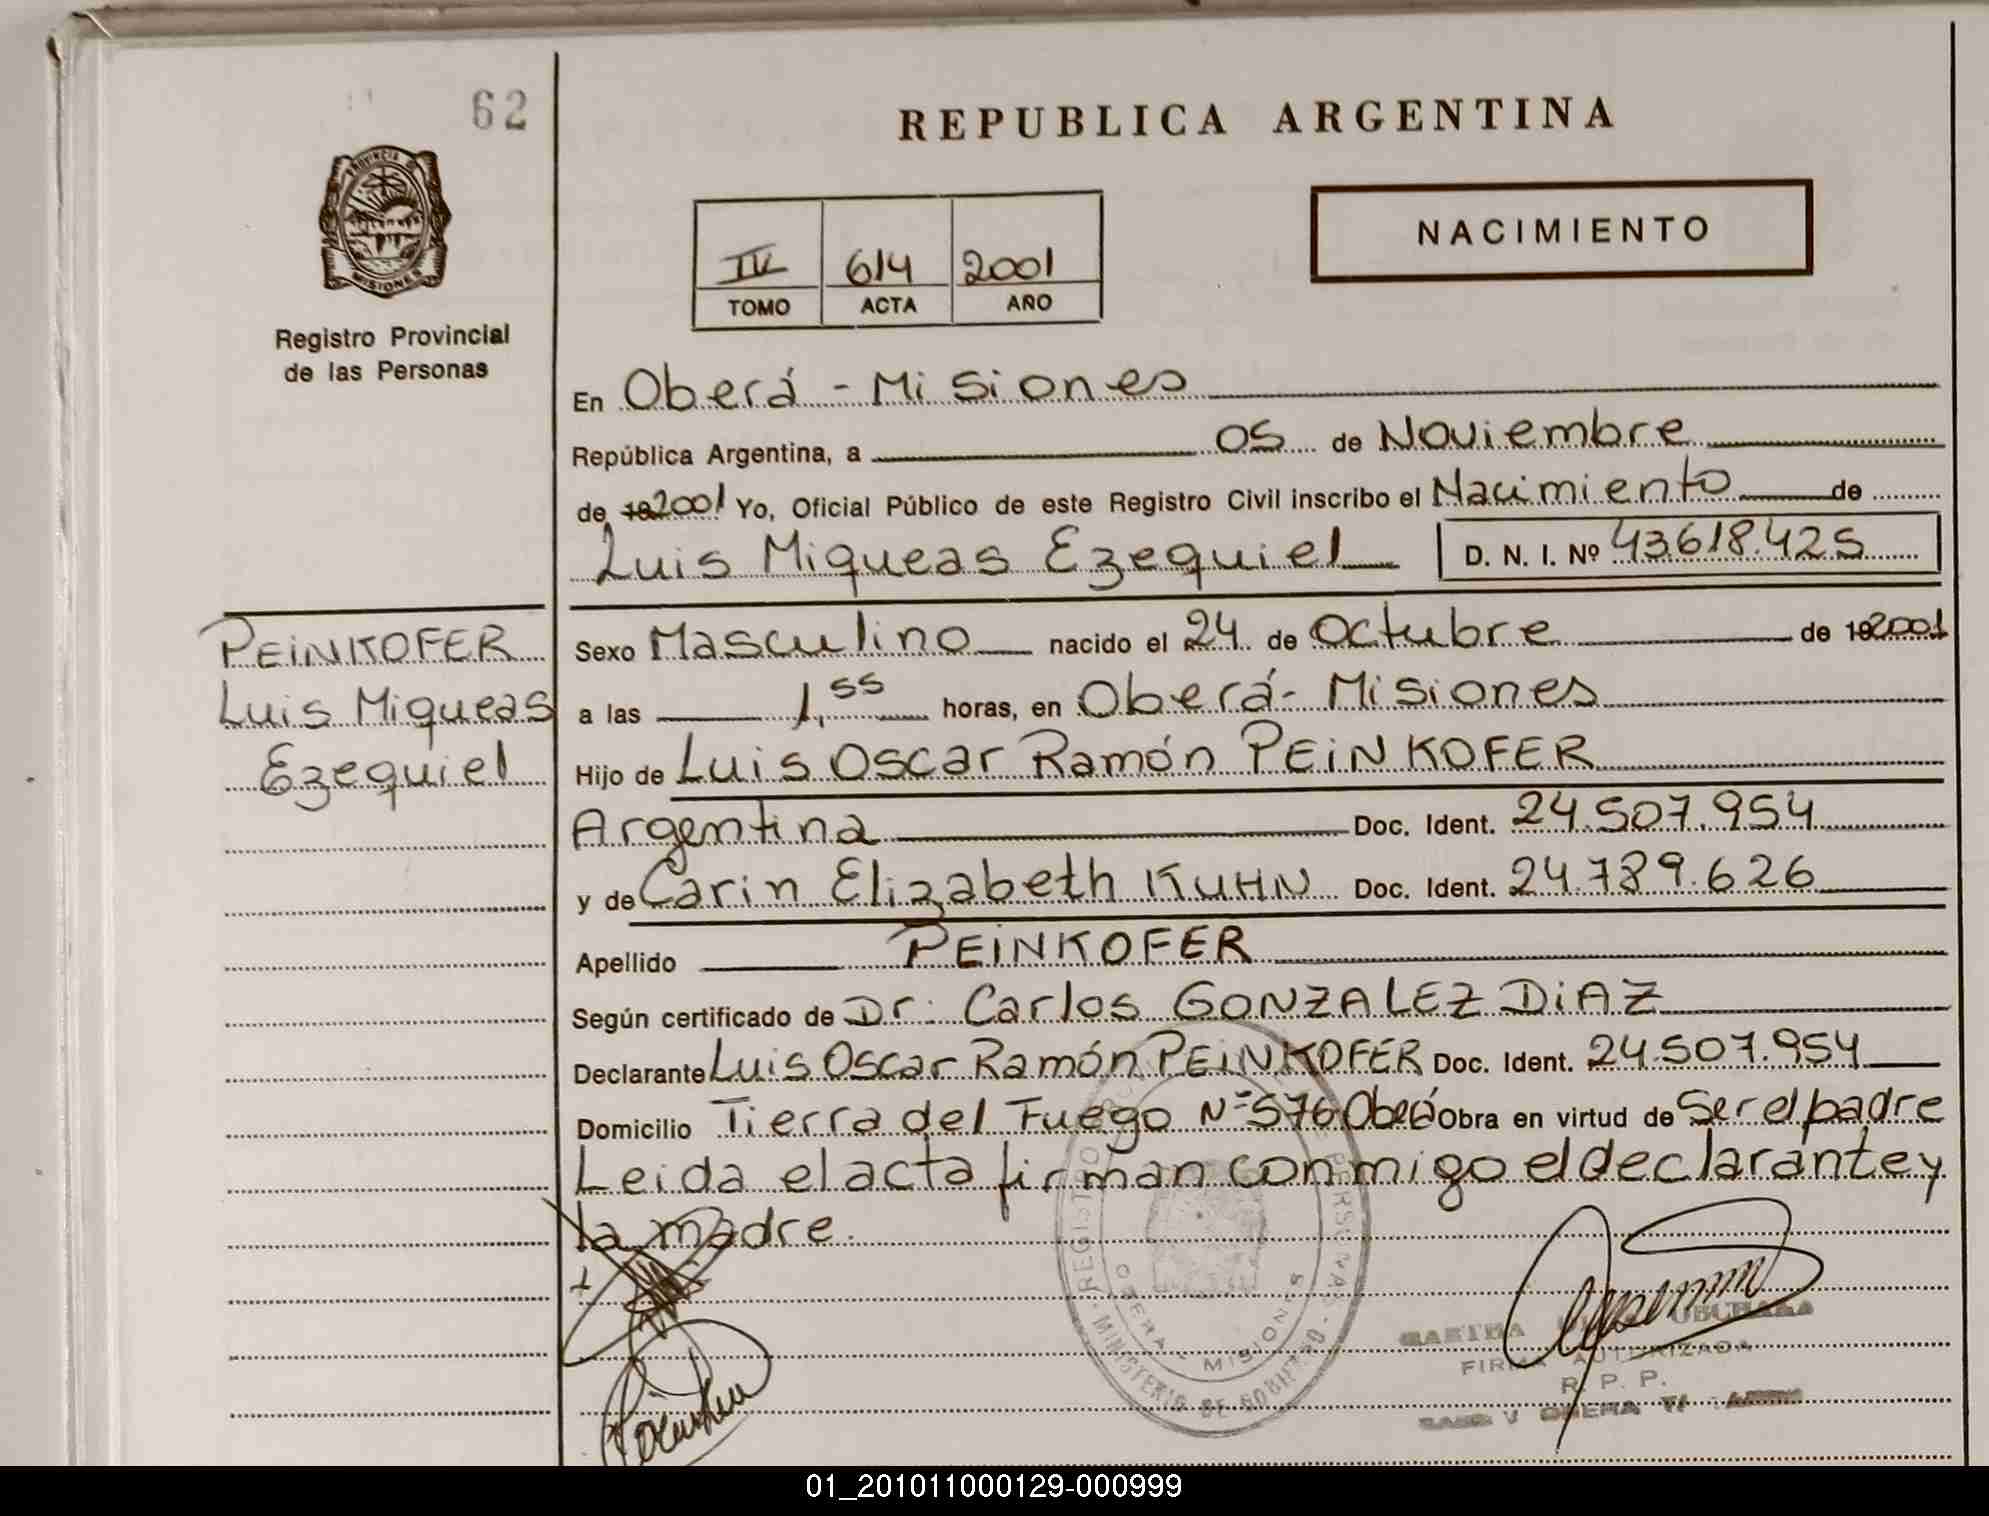 62
REPUBLICA ARGENTINA
PROVINCIA DE
MISIONES
NACIMIENTO
IV 614 2001
TOMO ACTA AÑO
Registro Provincial
de las Personas
En Oberá - Misiones
República Argentina, a 05 de Noviembre
de 19 2001 Yo, Oficial Público de este Registro Civil inscribo el Nacimiento de
Luis Miqueas Ezequiel D. N. I. Nº 43.618.425
PEINKOFER
Luis Miqueas
Ezequiel
Sexo Masculino nacido el 24 de Octubre de 19 2001
a las 1,55 horas, en Oberá - Misiones
Hijo de Luis Oscar Ramón PEINKOFER
Argentina Doc. Ident. 24.507.954
y de Carin Elizabeth KUHN Doc. Ident. 24.789.626
Apellido PEINKOFER
Según certificado de Dr. Carlos GONZALEZ DIAZ
Declarante Luis Oscar Ramón PEINKOFER Doc. Ident. 24.507.954
Domicilio Tierra del Fuego Nº 576 Oberá Obra en virtud de Ser el padre
Leida el acta firman conmigo el declarante y
la madre.
REGISTRO PERSONAS
OBERA - MISIONES
MINISTERIO DE GOBIERNO
FIRMA AUTORIZADA
R. P. P.
OBERA
01_201011000129-000999